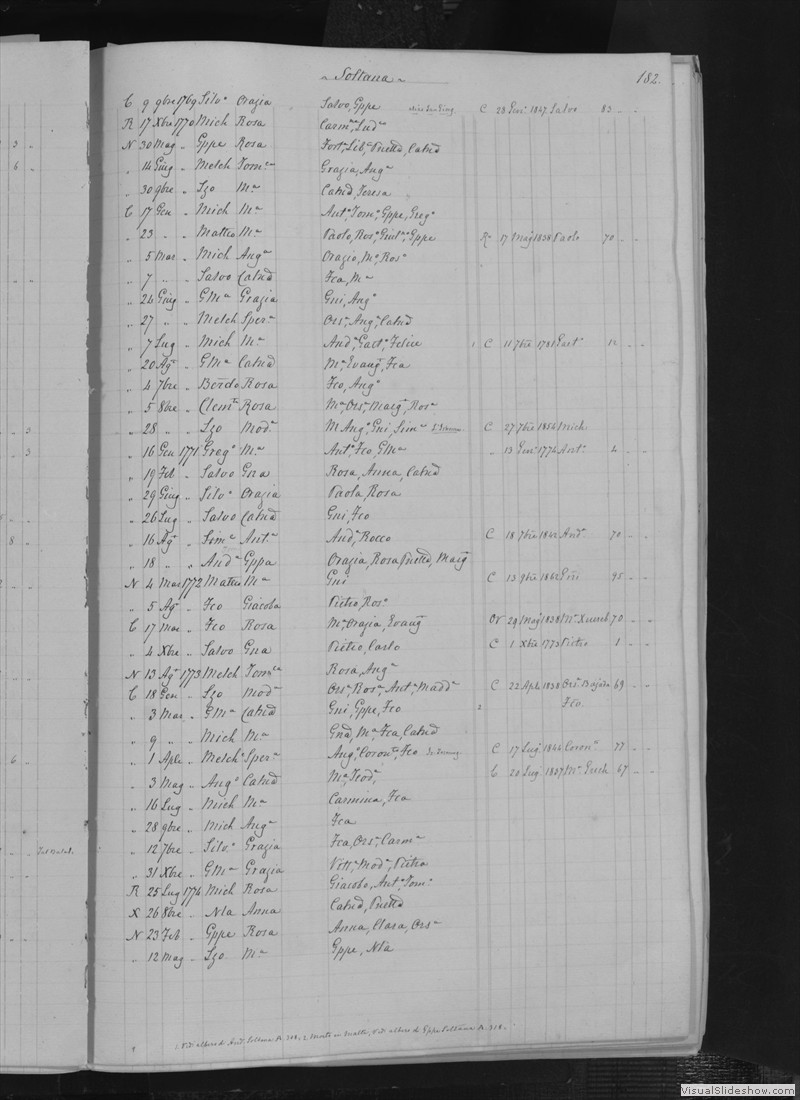 ~ Soltana ~ 182.
C 9 9bre 1769 Silv.o Orazia Salvo, Gppe C 28 Gen.o 1847 Salvo 83 - -
R 17 Xbre 1770 Mich Rosa Carm.na, Lud.a
N 30 Mag " Gppe Rosa Fort.a, Lib.a, Catnd
" 14 Giug " Melch Tom.ca Grazia, Ang.a
" 30 9bre " Lzo M.a Catnd, Teresa
C 17 Gen " Mich M.a Ant.o, Tom.o, Gppe, Greg.o
" 23 " " Matteo M.a Paolo, Ros.a, Gppe R.o 17 Mag 1838 Paolo 70 - -
" 5 Mar " Mich Ang.a Orazio, M.a, Ros.a
" 7 " " Salvo Catnd Fca, M.a
" 24 Giug " GM.a Grazia Gni, Ang.o
" 27 " " Melch Sper.a Ors.a, Ang.a, Catnd
" 7 Lug " Mich M.a And.a, Gaet.o, Felice 1 C 11 7bre 1781 Gaet.o 12 - -
" 20 Ag.t " GM.a Catnd M.a, Evang.ta, Fca
" 4 7bre " Bordo Rosa Fco, Ang.o
" 5 8bre " Clem.te Rosa M.a, Ors.a, Marg.ta, Ros.a
" 28 " " Lzo Mod.a M Ang.o, Gni, Sim.e C 27 7bre 1854 Mich
" 16 Gen 1771 Greg.o M.a Ant.o, Fco, GM.a " 13 Gen.o 1774 Ant.o 4 - -
" 19 Feb " Salvo Gna Rosa, Anna, Catnd
" 29 Giug " Silv.o Orazia Paola, Rosa
" 26 Lug " Salvo Catnd Gni, Fco
" 16 Ag.t " Sim.e Ant.a And.a, Rocco C 18 7bre 1842 And.a 70 - -
" 18 " " And.a Gppa Orazia, Rosa, Marg.ta
N 4 Mar 1772 Matteo M.a Gni C 13 9bre 1862 Gni 95 - -
" 5 Ag.t " Fco Giacoba Pietro, Ros.a
C 17 Mar " Fco Rosa M.a Orazia, Evang.ta Or 29 Mag 1838 M.a Xuereb 70 - -
" 4 Xbre " Salvo Gna Pietro, Carlo C 1 Xbre 1773 Pietro 1 - -
N 13 Ag.t 1773 Melch Tom.ca Rosa, Ang.a
C 18 Gen " Lzo Mod.a Ors.a, Ros.a, Ant.a, Madd.a C 22 Aple 1838 Ors.a Bajada 69 - -
" 3 Mar " GM.a Catnd Gni, Gppe, Fco 2 Fco
" 9 " " Mich M.a Gnd, M.a, Fca, Catnd
" 1 Aple " Melch.e Sper.a Ang.o, Coron.to, Fco C 17 Lug 1844 Coron.to 77 - -
" 3 Mag " Ang.o Catnd M.a, Teod.a C 20 Lug 1837 M.a Grech 67 - -
" 16 Lug " Mich M.a Carmina, Fca
" 28 9bre " Mich Ang.a Fca
" 12 7bre " Silv.o Grazia Fca, Ors.a, Carm.a
" 31 Xbre " GM.a Grazia Vitt.a, Mod.a, Pietro
R 25 Lug 1774 Mich Rosa Giacobo, Ant.o, Tom.o
X 26 8bre " Nla Anna Catnd
N 23 Feb " Gppe Rosa Anna, Clara, Ors.a
" 12 Mag " Lzo M.a Gppe, Nla
1. Vidi albero di Ant.o Soltana A. 318. 2 Morto in Malta, Vidi albero di Gppe Soltana A. 318.
VisualSlideshow.com